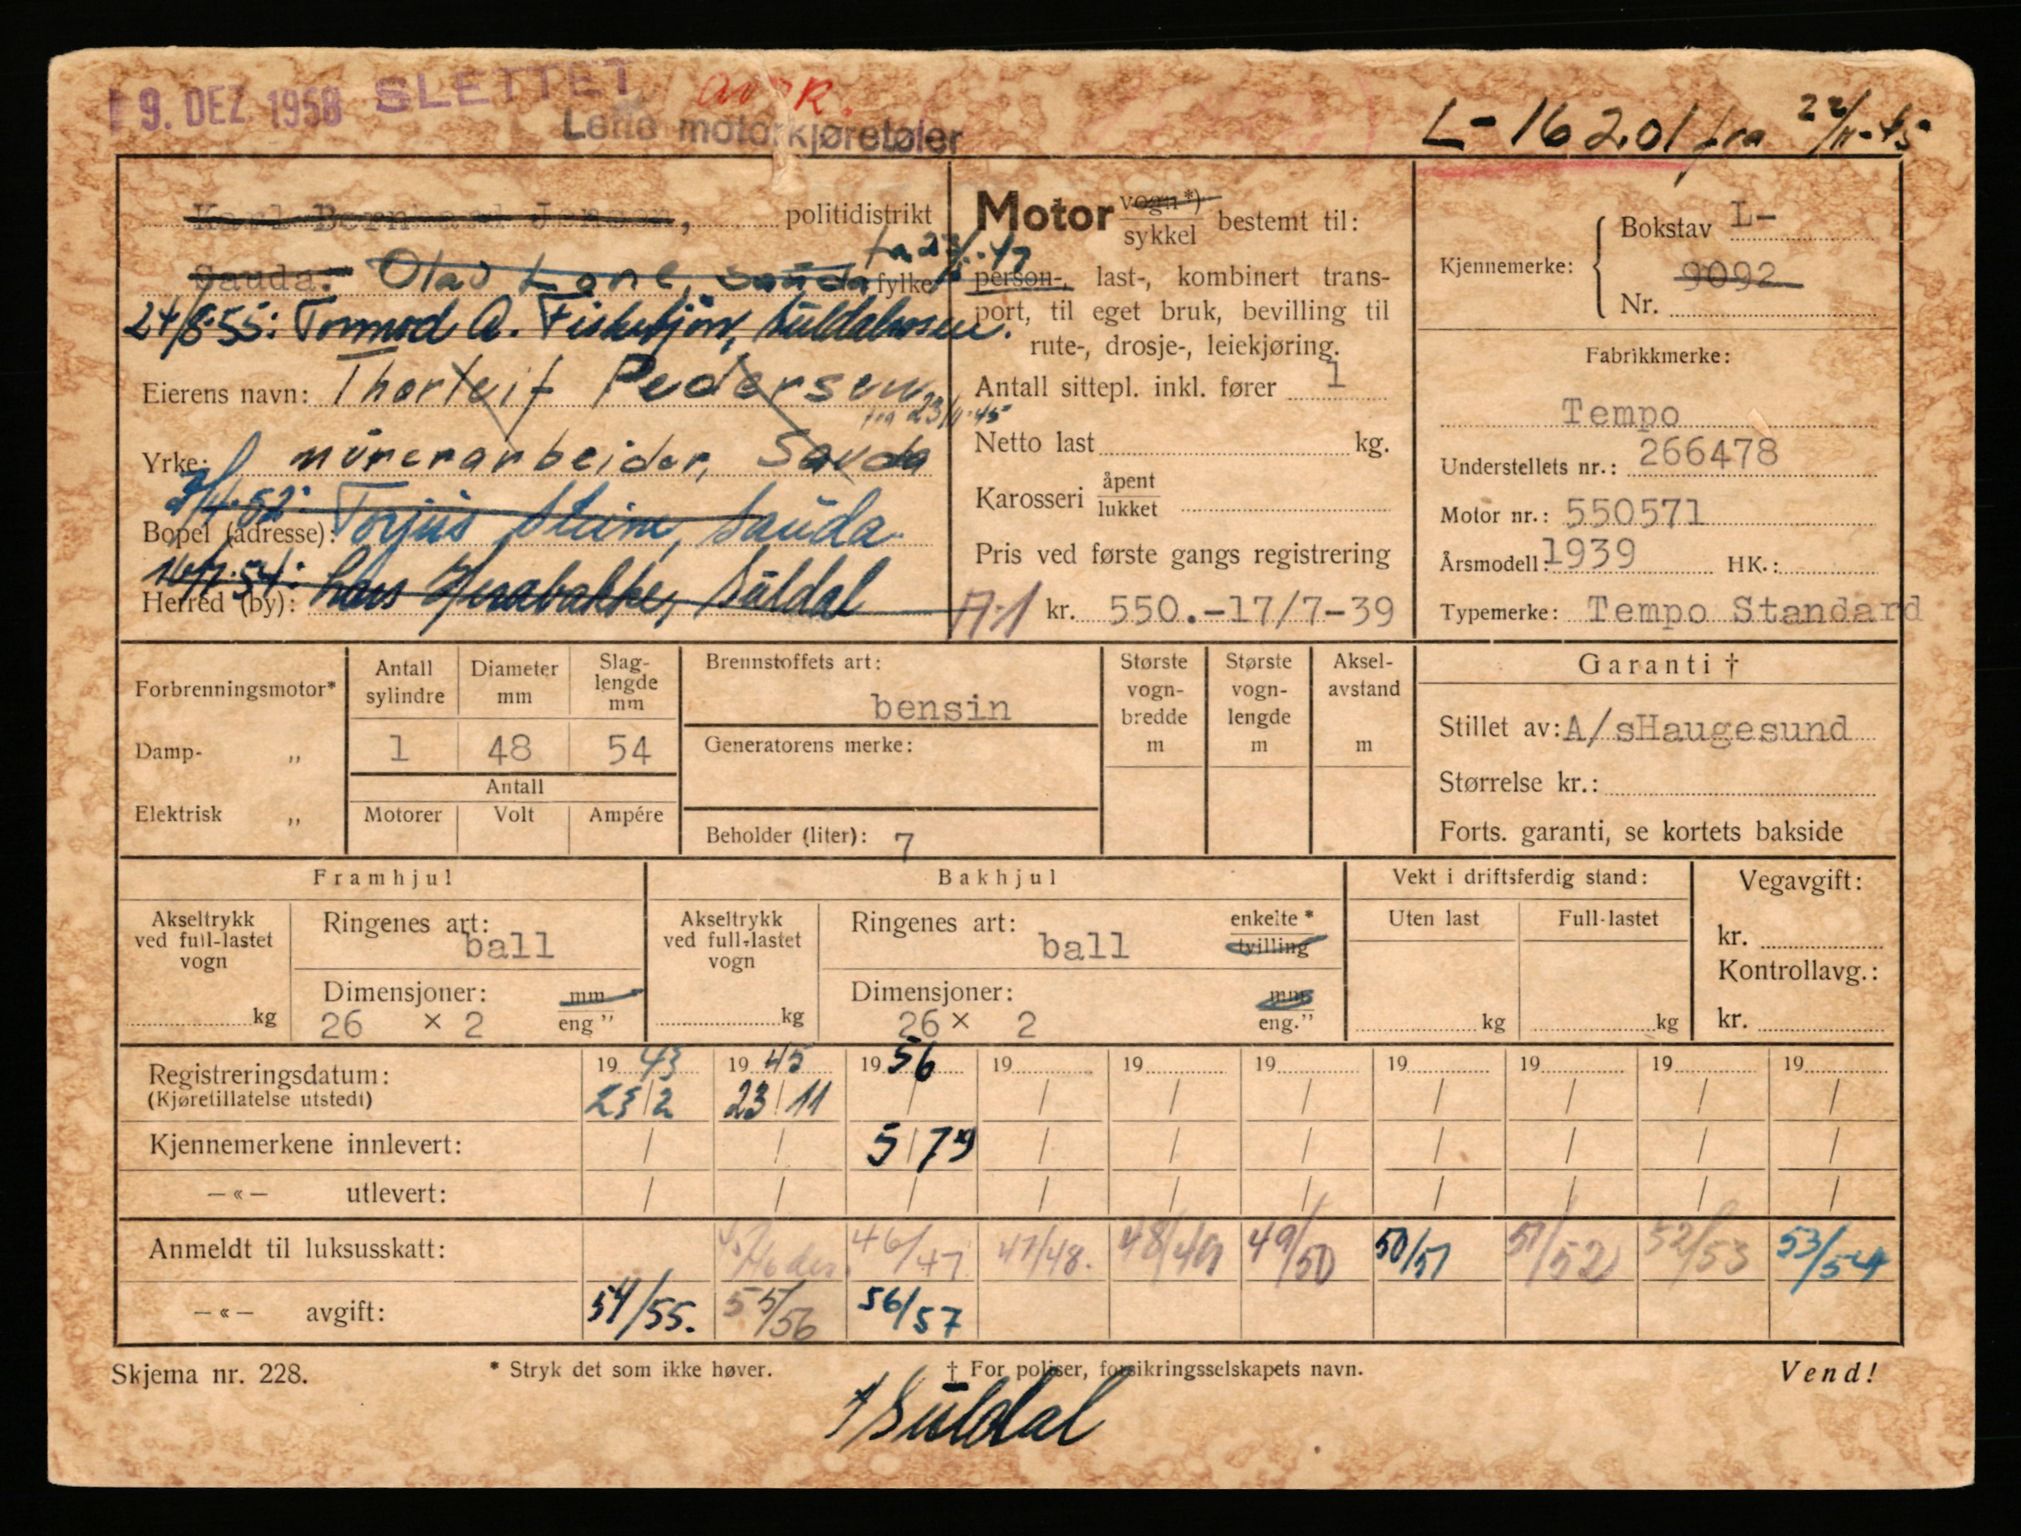 9. DEZ 1958 SLETTET avr.
Lette motorkjøretøier
L-16201 fra 22/11-45
Karl Bernhard Jensen, politidistrikt
Sauda. Olav Lone, Sauda fra 23/ -47 fylke
24/8-55: Tormod A. Fisketjøn, Suldalsosen.
Eierens navn: Thorleif Pedersen
fra 23/11-45
Yrke: murerarbeider, Sauda
2/4-52: Torjus Steine, Sauda
Bopel (adresse):
16/7-54: Lars Herabakke, Suldal
Herred (by):
Motor vogn*) sykkel bestemt til:
person-, last-, kombinert trans-
port, til eget bruk, bevilling til
rute-, drosje-, leiekjøring.
Antall sittepl. inkl. fører 1
Netto last kg.
Karosseri åpent lukket
Pris ved første gangs registrering
A-1 kr. 550.-17/7-39
Kjennemerke: { Bokstav L-
Nr. 9092
Fabrikkmerke:
Tempo
Understellets nr.: 266478
Motor nr.: 550571
Årsmodell: 1939 HK.:
Typemerke: Tempo Standard
Forbrenningsmotor*
Damp- „
Elektrisk „
Antall sylindre Diameter mm Slag-lengde mm
1 48 54
Antall
Motorer Volt Ampére
Brennstoffets art:
bensin
Generatorens merke:
Beholder (liter): 7
Største vogn-bredde m
Største vogn-lengde m
Aksel-avstand m
Garanti †
Stillet av: A/sHaugesund
Størrelse kr.:
Forts. garanti, se kortets bakside
Framhjul
Akseltrykk ved full-lastet vogn
kg
Ringenes art:
ball
Dimensjoner: mm
26 × 2 eng "
Bakhjul
Akseltrykk ved full-lastet vogn
kg
Ringenes art: enkelte *
ball tvilling
Dimensjoner: mm
26 × 2 eng."
Vekt i driftsferdig stand:
Uten last Full-lastet
kg kg
Vegavgift:
kr.
Kontrollavg.:
kr.
Registreringsdatum: 19 43 19 45 19 56 19 19 19 19 19 19 19
(Kjøretillatelse utstedt) 23/2 23/11 / / / / / / / /
Kjennemerkene innlevert: / / 5/7 / / / / / / /
—«— utlevert: / / / / / / / / / /
Anmeldt til luksusskatt: 46/47 47/48. 48/49 49/50 50/51 51/52 52/53 53/54
—«— avgift: 54/55. 55/56 56/57
Skjema nr. 228. * Stryk det som ikke høver. † For poliser, forsikringsselskapets navn. Vend!
Suldal